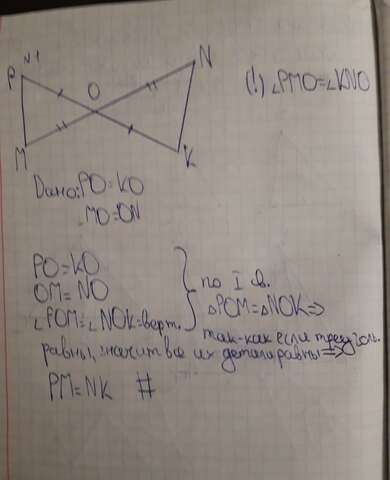 N1
P
N
O
(!) ∠PMO=∠KNO
M
K
Дано: PO=KO
MO=ON
PO=KO
OM=NO
∠POM=∠NOK=верт.
по I св.
△POM=△NOK=>
так-как если треуголь.
равны, значит все их детали равны=>
PM=NK #